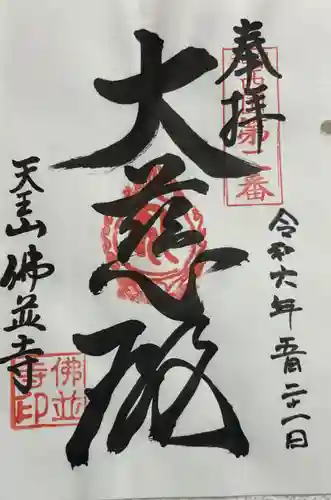 奉拝
令和六年五月二十一日
大慈殿
天王山佛並寺
佛並寺印